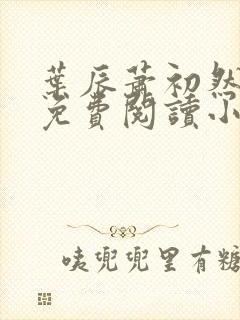 葉辰蕭初然
免費閱讀小
咦兜兜里有糖